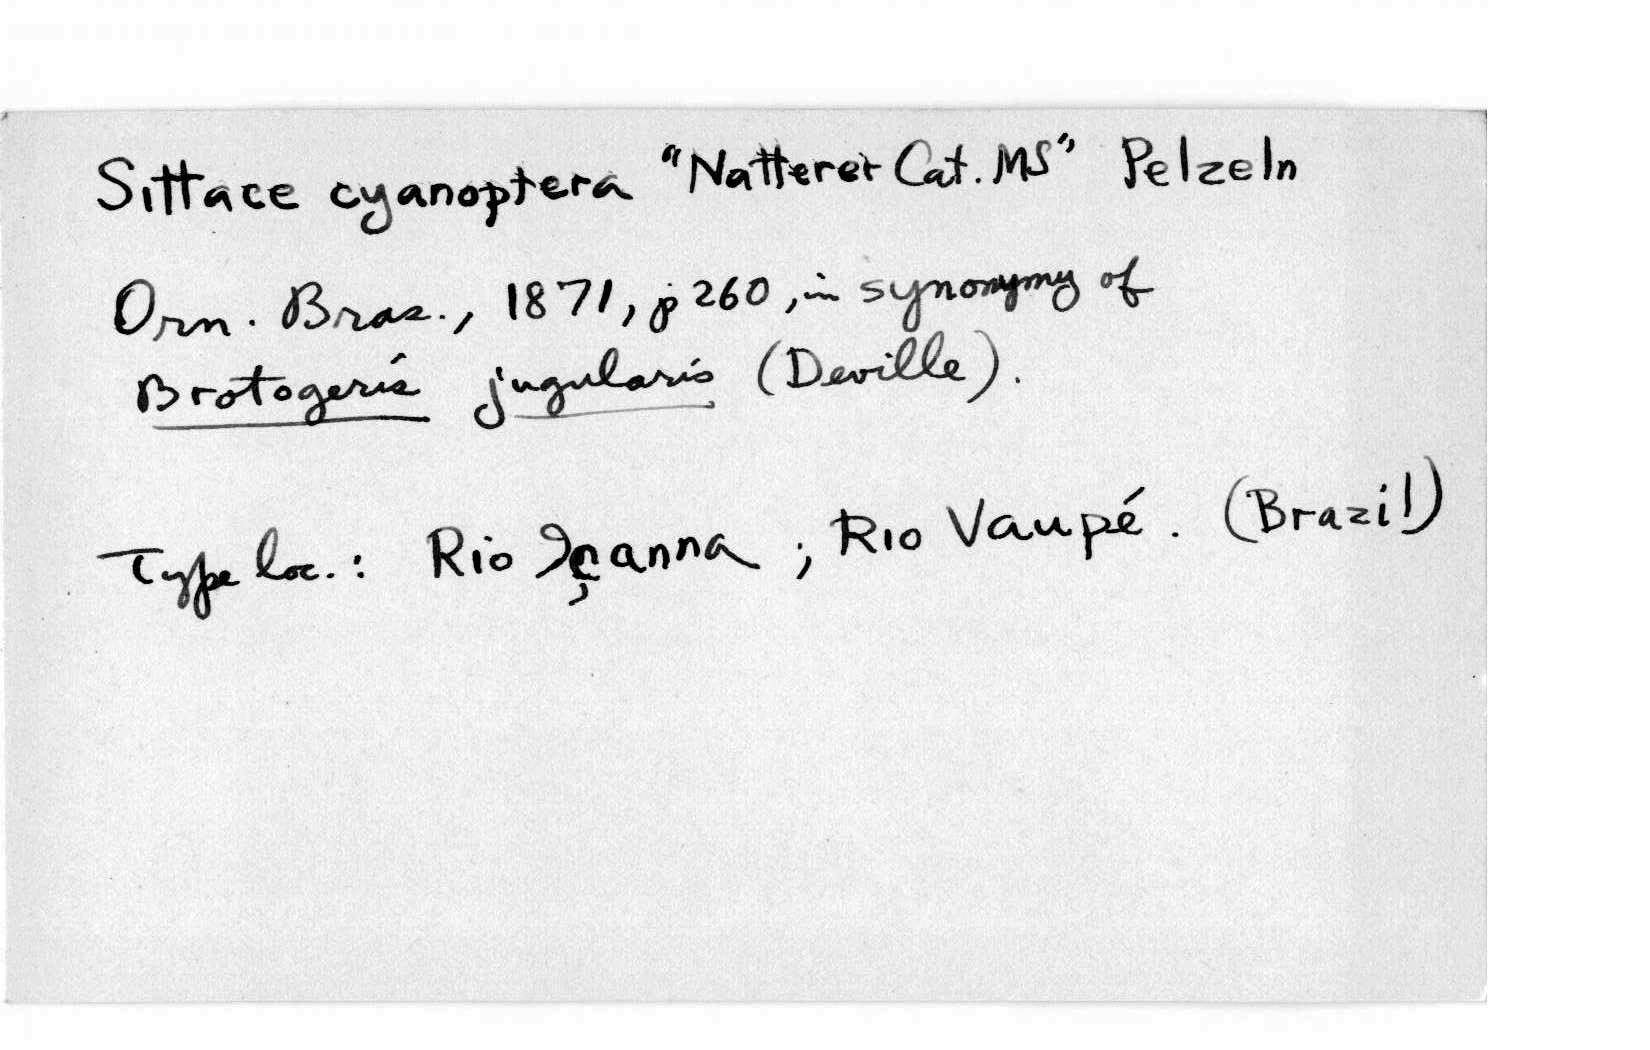 Sittace cyanoptera "Natterer Cat. MS" Pelzeln
Orn. Bras., 1871, p 260, in synonymy of
Brotogeris jugularis (Deville).
Type loc.: Rio Içanna ; Rio Vaupé. (Brazil)